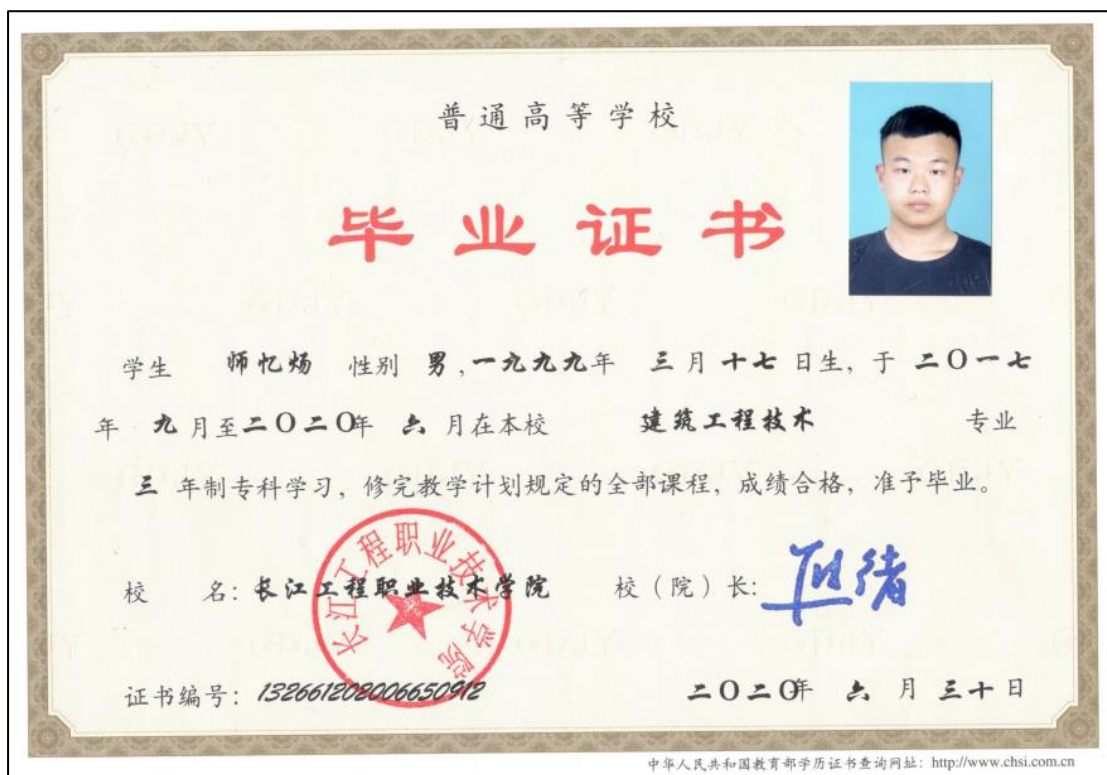 普通高等学校
毕业证书
学生 师忆炀 性别 男,一九九九年 三月十七日生,于二〇一七
年 九月至二〇二〇年 六月在本校 建筑工程技术 专业
三年制专科学习,修完教学计划规定的全部课程,成绩合格,准予毕业。
校 名:长江工程职业技术学院 校(院)长:
长江工程职业技术学院
证书编号:132661202006650912 二〇二〇年 六月三十日
中华人民共和国教育部学历证书查询网址:http://www.chsi.com.cn